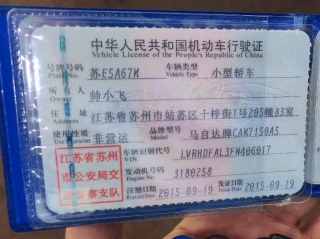 中华人民共和国机动车行驶证
Vehicle License of the People's Republic of China
号牌号码 苏E5A67M 车辆类型 小型轿车
Plate No. Vehicle Type
所有人 帅小飞
Owner
住址 江苏省苏州市姑苏区十梓街1号205幢83室
Address
使用性质 非营运 品牌型号 马自达牌CAM7150A5
Use Character Model
江苏省苏州市公安局交
支队
车辆识别代号 LVRHDFAL3FN406017
VIN
发动机号码 3180258
Engine No.
注册日期 2015-09-19 发证日期 2015-09-19
Register Date Issue Date